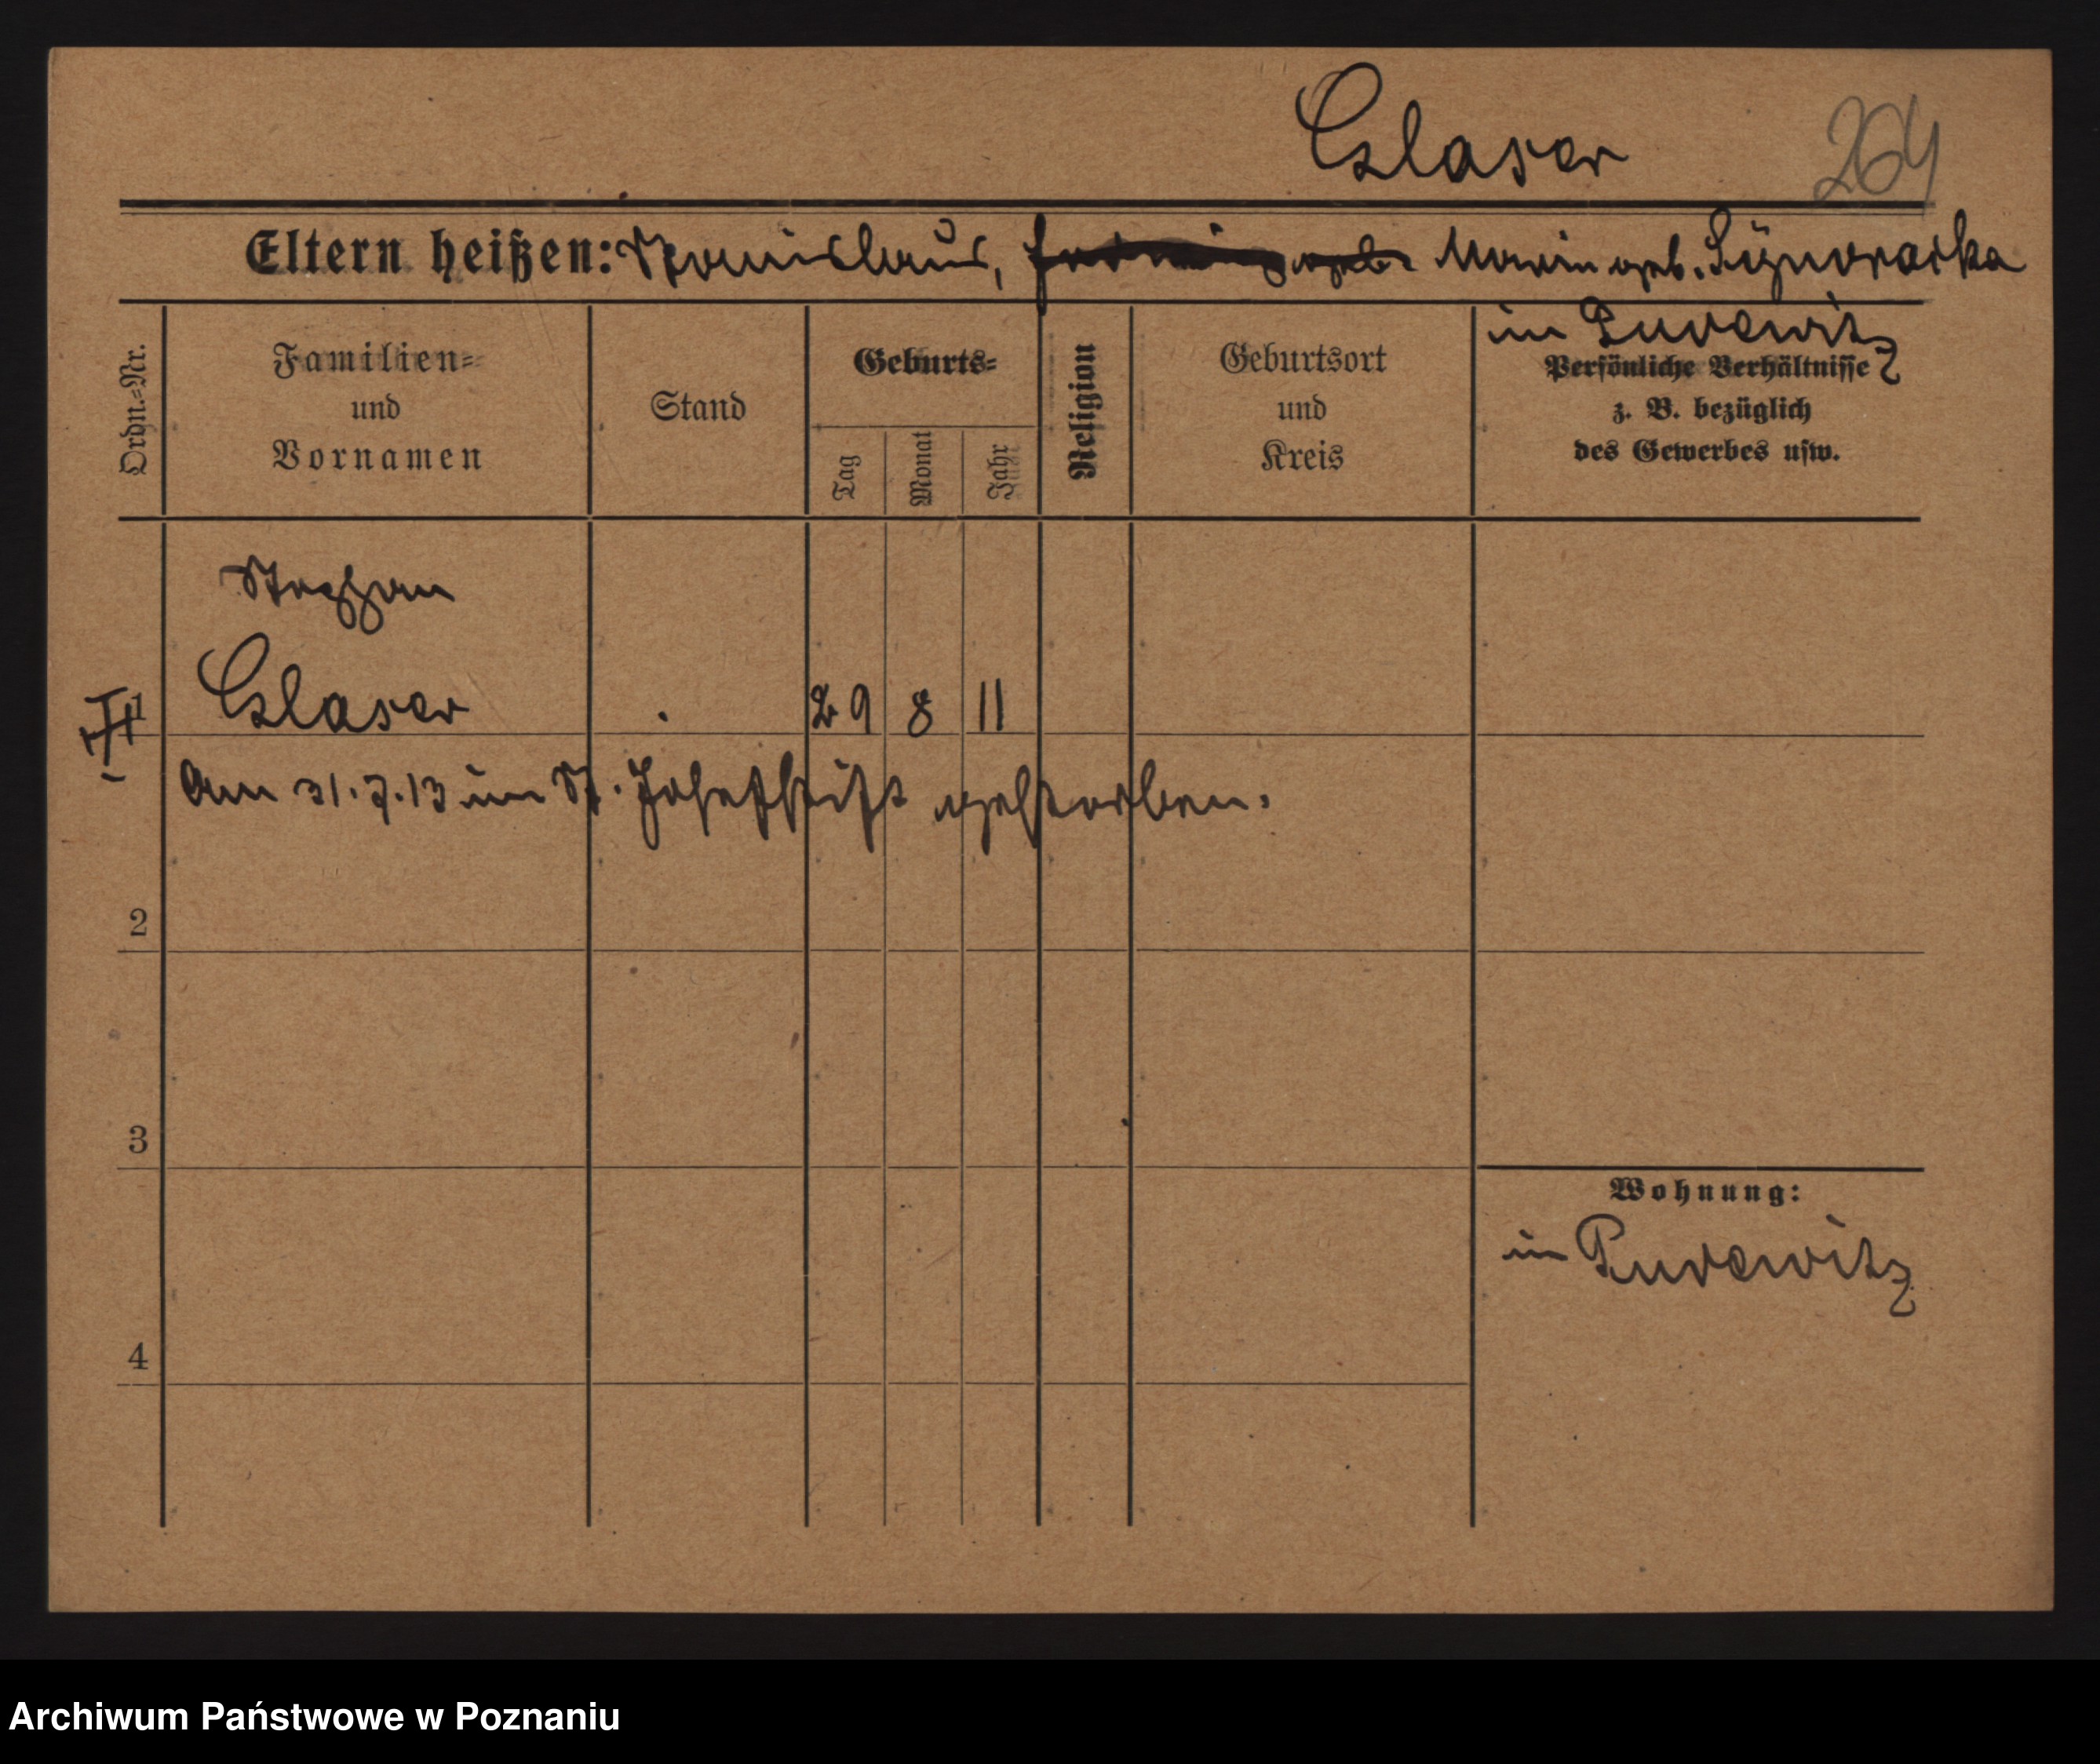 Glaser 264
Eltern heißen: Stanislaus, geb. Maria geb.
in Pudewitz
Ordn.=Nr.
Familien=
und
Vornamen
Stand
Geburts=
Tag
Monat
Jahr
Religion
Geburtsort
und
Kreis
Persönliche Verhältnisse
z. B. bezüglich
des Gewerbes usw.
Stephan
1 Glaser 29 8 11
Am 31.7.13 im St. Josefstift gestorben.
2
3
Wohnung:
in Pudewitz
4
Archiwum Państwowe w Poznaniu